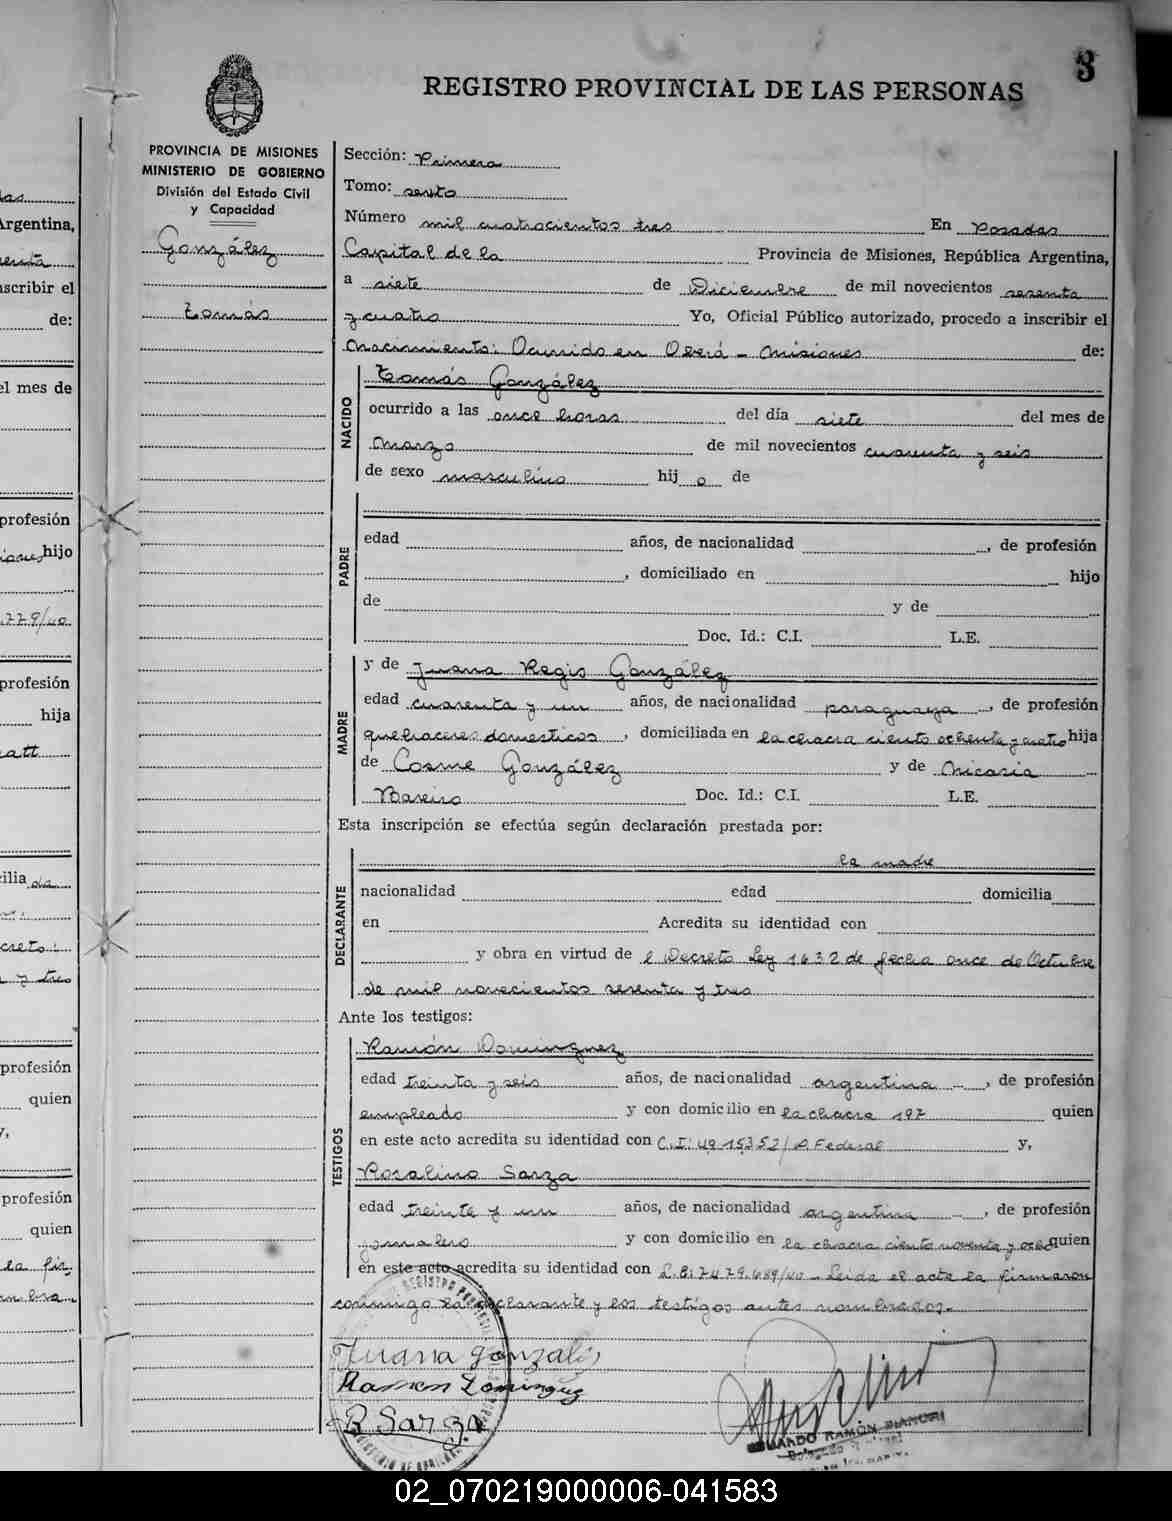 3
REGISTRO PROVINCIAL DE LAS PERSONAS
PROVINCIA DE MISIONES
MINISTERIO DE GOBIERNO
División del Estado Civil
y Capacidad
González
Tomás
Sección: Primera
Tomo: sexto
Número mil cuatrocientos tres En Posadas
Capital de la Provincia de Misiones, República Argentina,
a siete de Diciembre de mil novecientos sesenta
y cuatro Yo, Oficial Público autorizado, procedo a inscribir el
Nacimiento: Ocurrido en Oberá - Misiones de:
NACIDO
Tomás González
ocurrido a las once horas del día siete del mes de
Marzo de mil novecientos cuarenta y seis
de sexo masculino hij o de
PADRE
edad años, de nacionalidad , de profesión
, domiciliado en hijo
de y de
Doc. Id.: C.I. L.E.
MADRE
y de Juana Regis González
edad cuarenta y un años, de nacionalidad paraguaya , de profesión
quehaceres domesticos , domiciliada en la chacra ciento ochenta y cuatro hija
de Cosme González y de Nicacia
Bareiro Doc. Id.: C.I. L.E.
Esta inscripción se efectúa según declaración prestada por:
DECLARANTE
la madre
nacionalidad edad domicilia
en Acredita su identidad con
y obra en virtud de l Decreto Ley 1632 de fecha once de Octubre
de mil novecientos sesenta y tres
Ante los testigos:
TESTIGOS
Ramón Dominguez
edad treinta y seis años, de nacionalidad argentina , de profesión
empleado y con domicilio en la chacra 197 quien
en este acto acredita su identidad con C.I: 4915352/P. Federal y,
Rosalino Sarza
edad treinta y un años, de nacionalidad argentina , de profesión
jornalero y con domicilio en la chacra ciento noventa y ocho quien
en este acto acredita su identidad con L.E: 7.479.689/40 - Leída el acta la firmaron
conmigo la declarante y los testigos antes nombrados.-
Juana Gonzalis
Ramon Dominguez
R Sarza
EDUARDO RAMÓN BIANCHI
02_070219000006-041583